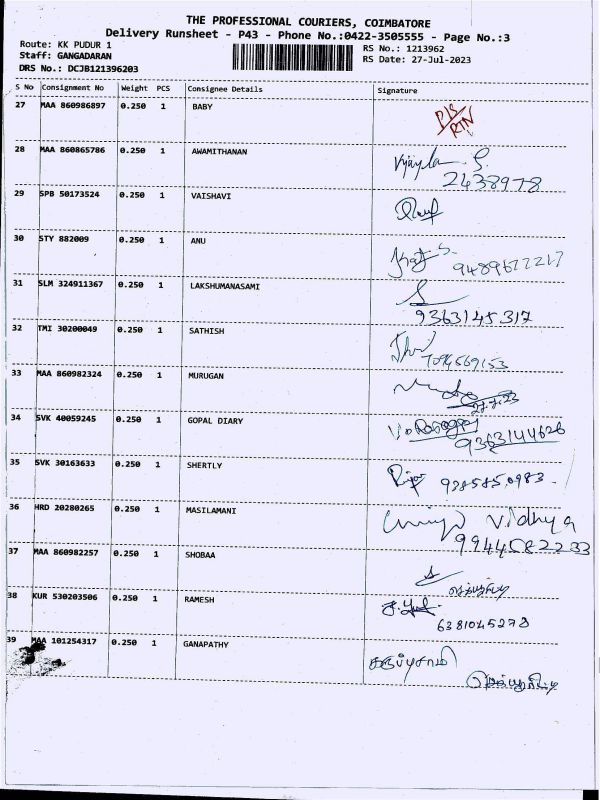 THE PROFESSIONAL COURIERS, COIMBATORE
Delivery Runsheet - P43 - Phone No.:0422-3505555 - Page No.:3
Route: KK PUDUR 1
RS No.: 1213962
Staff: GANGADARAN
RS Date: 27-Jul-2023
DRS No.: DCJB121396203
S No Consignment No Weight PCS Consignee Details Signature
27 MAA 860986897 0.250 1 BABY
D/S
RTN
28 MAA 860865786 0.250 1 AWAMITHANAN
2438978
29 SPB 50173524 0.250 1 VAISHAVI
30 STY 882009 0.250 1 ANU
31 SLM 324911367 0.250 1 LAKSHUMANASAMI
9363145317
32 TMI 30200049 0.250 1 SATHISH
7094569153
33 MAA 860982324 0.250 1 MURUGAN
27.7.23
34 SVK 40059245 0.250 1 GOPAL DIARY
9363144626
35 SVK 30163633 0.250 1 SHERTLY
36 HRD 20280265 0.250 1 MASILAMANI
Vidhya
9944582233
37 MAA 860982257 0.250 1 SHOBAA
38 KUR 530203506 0.250 1 RAMESH
6381045278
39 MAA 101254317 0.250 1 GANAPATHY
கருப்சாமி